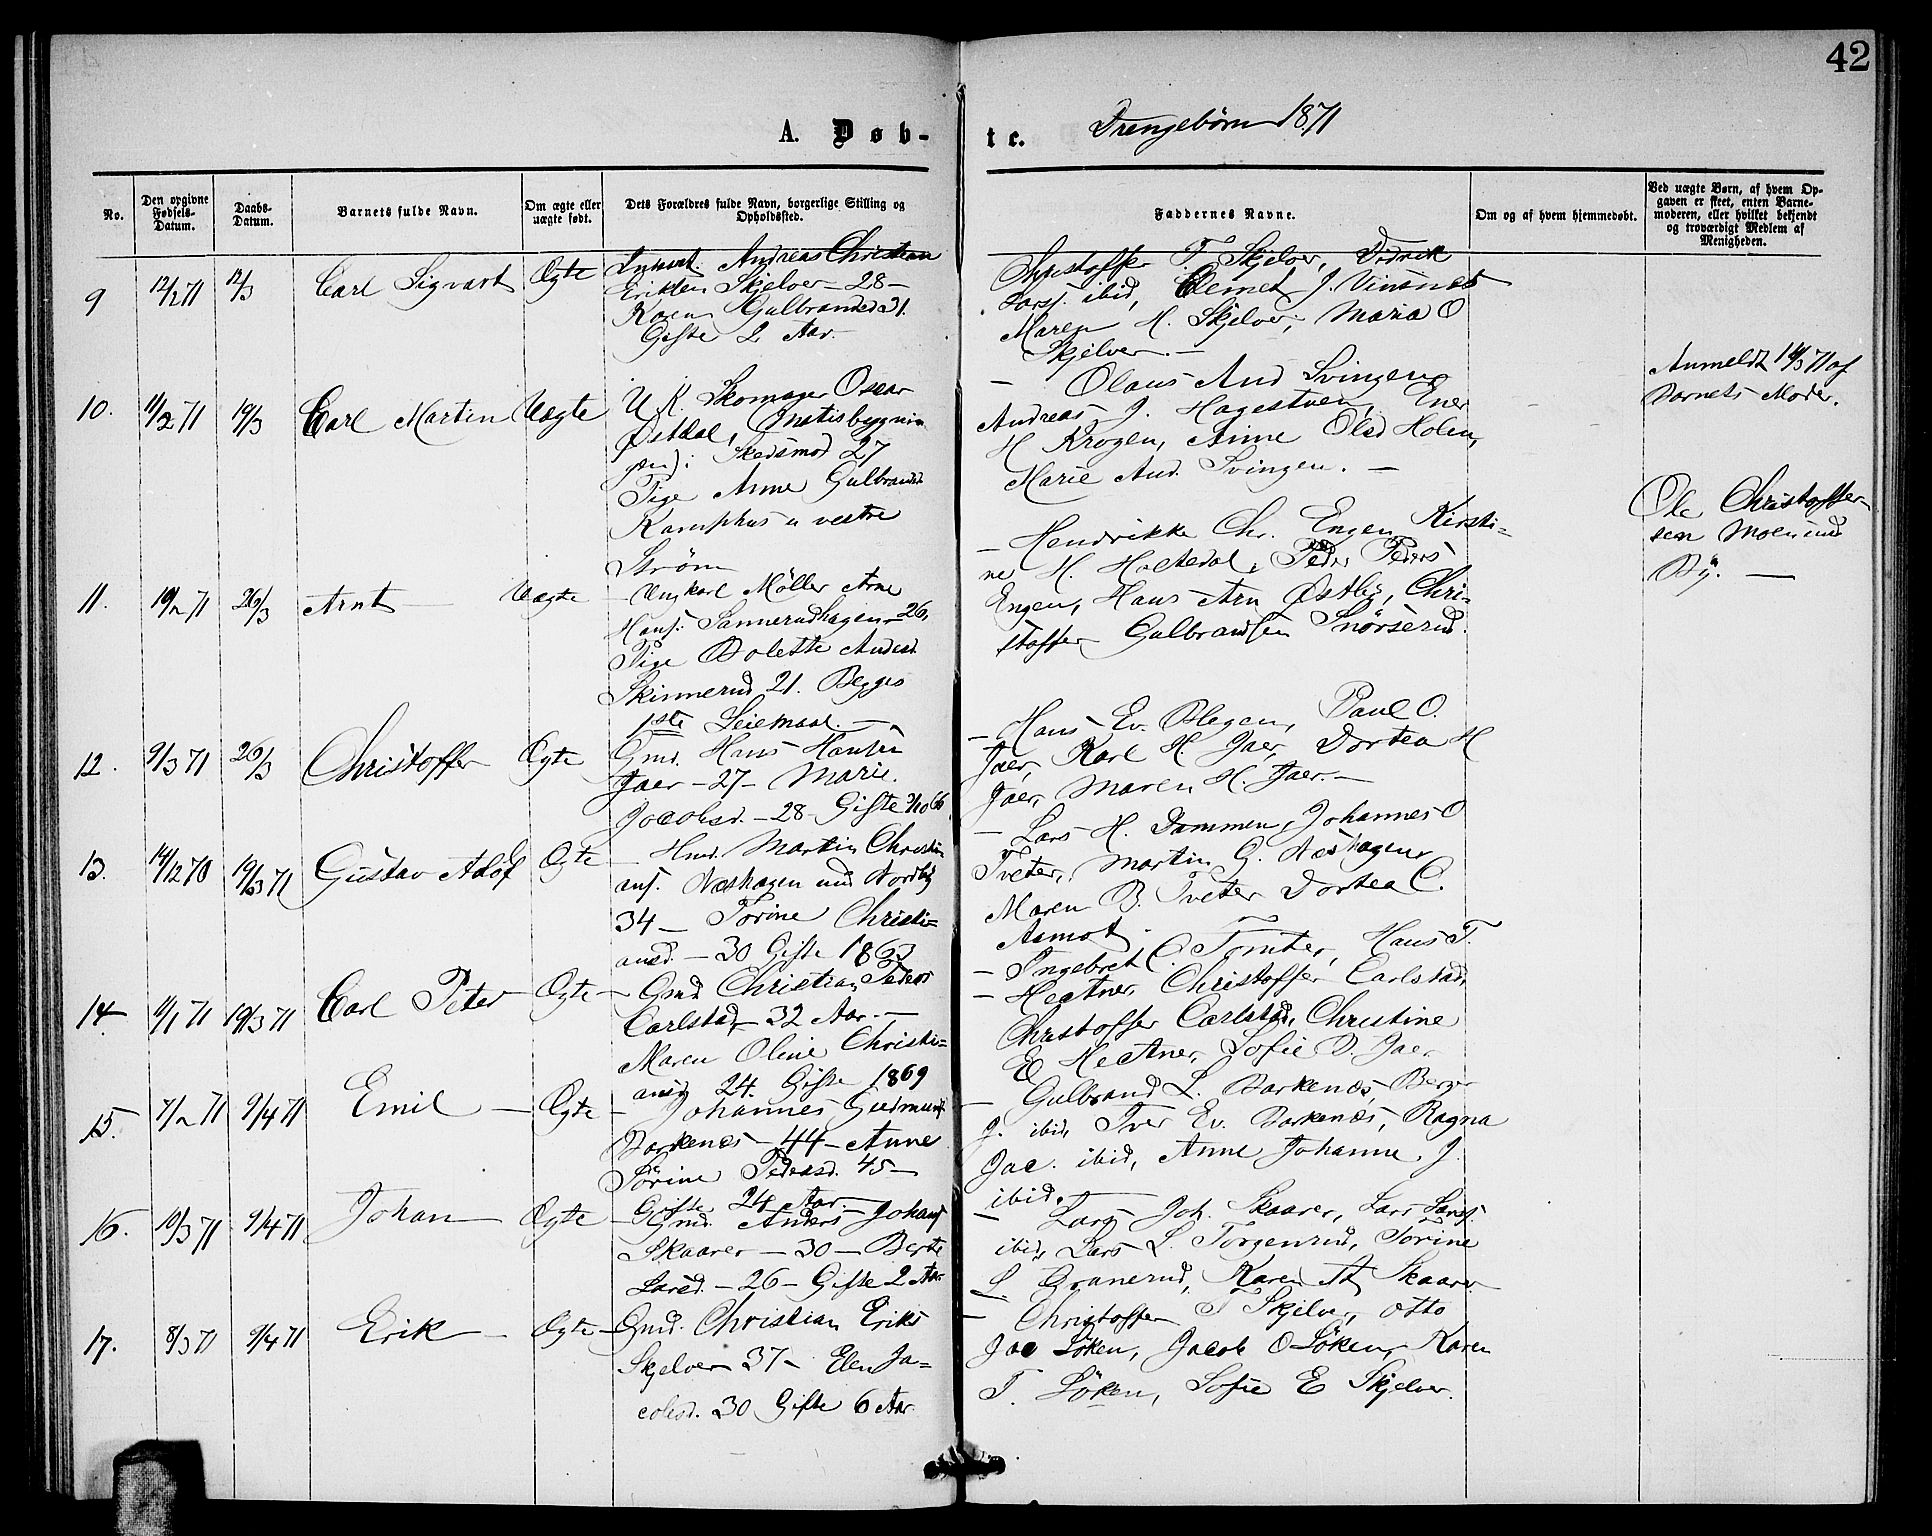 42
A. Døb-
te.
Drengebørn 1871
No.
Den opgivne Fødsels-Datum.
Daabs-Datum.
Barnets fulde Navn.
Om ægte eller uægte født.
Dets Forældres fulde Navn, borgerlige Stilling og Opholdssted.
Faddernes Navne.
Om og af hvem hjemmedøbt.
Ved uægte Børn, af hvem Opgaven er skeet, enten Barnemoderen, eller hvilket bekjendt og troværdigt Medlem af Menigheden.
9
12/2 71
12/3
Carl Sigvart
Ægte
Andreas Christian
Eriksen Skjelver - 28 -
Karen Gulbrandsd 31.
Gifte 2 Aar.
Christoffer T Skjelver, Didrik
Larss. ibid, Clemet J. Vinsnes
Maren H. Skjelver, Maria O
Skjelver. -
10.
11/2 71
19/3
Carl Martin
Uægte
U.K. Skomager Oscar
Østdal,
i Skedsmod 27
Pige Anne Gulbrandsd
Kamphus u vestre
Strøm
- Olaus And Svingen,
Andreas J. Hagestuen, Ener
H Krogen, Anne Olsd Holen,
Marie And. Svingen. -
Anmeldt 14/3 71 af
Barnets Moder.
11.
19/2 71
26/3
Arnt
Uægte
- Ungkarl Möller Arne
Hans. Sannerudhagen - 26,
Pige Dolette Andersd
Skinnerud 21. Begges
1ste Leiemaal. -
- Hendrikke Chr. Engen, Kirsti-
ne H. Holtedal, Peder Peders
Engen, Hans Arn Østby, Chri-
stoffer Gulbrandsen Snörserud.
Ole Christoffer-
sen Moen und
By. -
12.
9/3 71
26/3
Christoffer
Ægte
Gmd. Hans Hansen
Jaer - 27 - Marie
Jacobsd. - 28 - Gifte 3/10 66
- Hans Ev. Blegen, Paul O.
Jaer, Karl H. Jaer, Dortea H
Jaer, Maren H. Jaer. -
13.
14/12 70
19/3 71
Gustav Adolf
Ægte
- Hmd. Martin Christi
ans. Næshagen und Nordby
34 - Torine Christi=
ansd. - 30 Gifte 1863
- Lars H. Dammen, Johannes O
Tveter, Martin G. Næshagen,
Maren B. Tveter Dortea C.
Aamot
14
11/1 71
19/3 71
Carl Peter
Ægte
- Gmd Christian Peders
Carlstad - 32 Aar. -
Maren Oline Christi=
ansd 24. Gifte 1869
- Ingebret C Tomter, Hans T.
- Hectner, Christoffer Carlstad,
Christoffer Carlstad, Christine
E Hectner, Sofie D. Jaer
15.
7/2 71
9/4 71
Emil
Ægte
- Johannes Gudmunds
Barkenæs - 44 - Anne
Sörine Pedersd. 45 -
Gifte 24 Aar. -
- Gulbrand L. Barkenæs, Berger
J. ibid, Iver Ev. Barkenæs, Ragna
Jac. ibid, Anne Johanne J.
ibid.
16.
10/3 71
9/4 71
Johan
Ægte
- Gmd. Anders Johans
Skaarer - 30 - Berte
Larsd. - 26 - Gifte 2 Aar
- Lars Joh. Skaarer, Lars Larss.
ibid, Lars L. Torgenrud, Torine
L. Granerud, Karen A Skaarer
17.
8/3 71
9/4 71
Erik
Ægte
- Gmd. Christian Eriks
Skjelver 37 - Elen Ja=
cobsd. 30 Gifte 6 Aar
- Christoffer T Skjelver, Otto
Jac Löken, Jacob O Löken, Karen
T. Löken, Sofie E Skjelver.